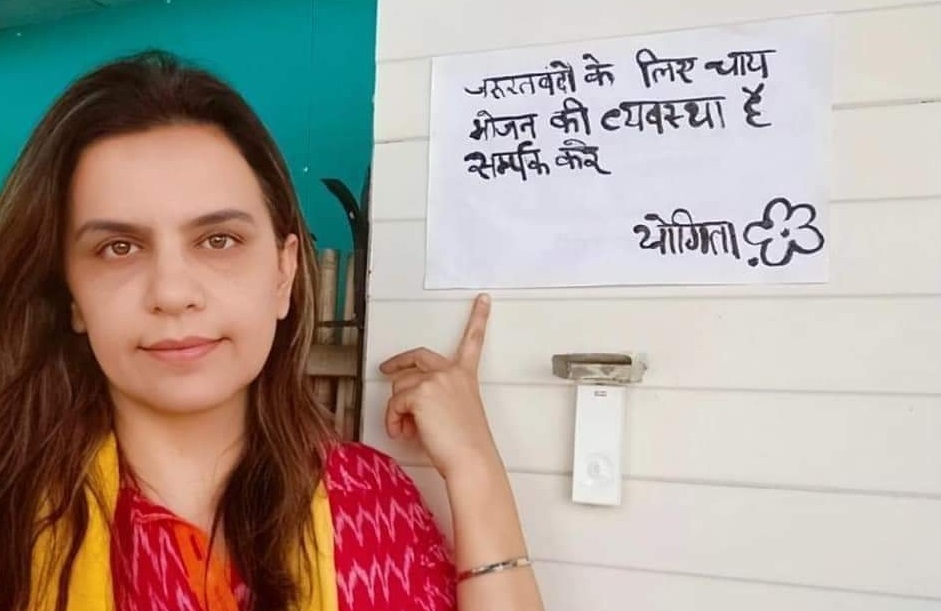 जरुरतवंदो के लिए चाय
भोजन की व्यवस्था है
सर्म्पक करे
योगिता